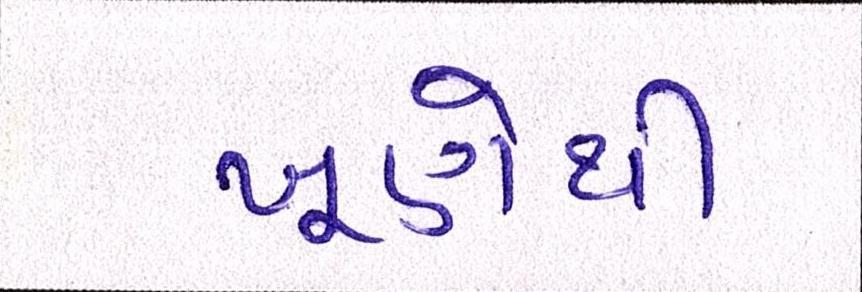 ખૂણેથી